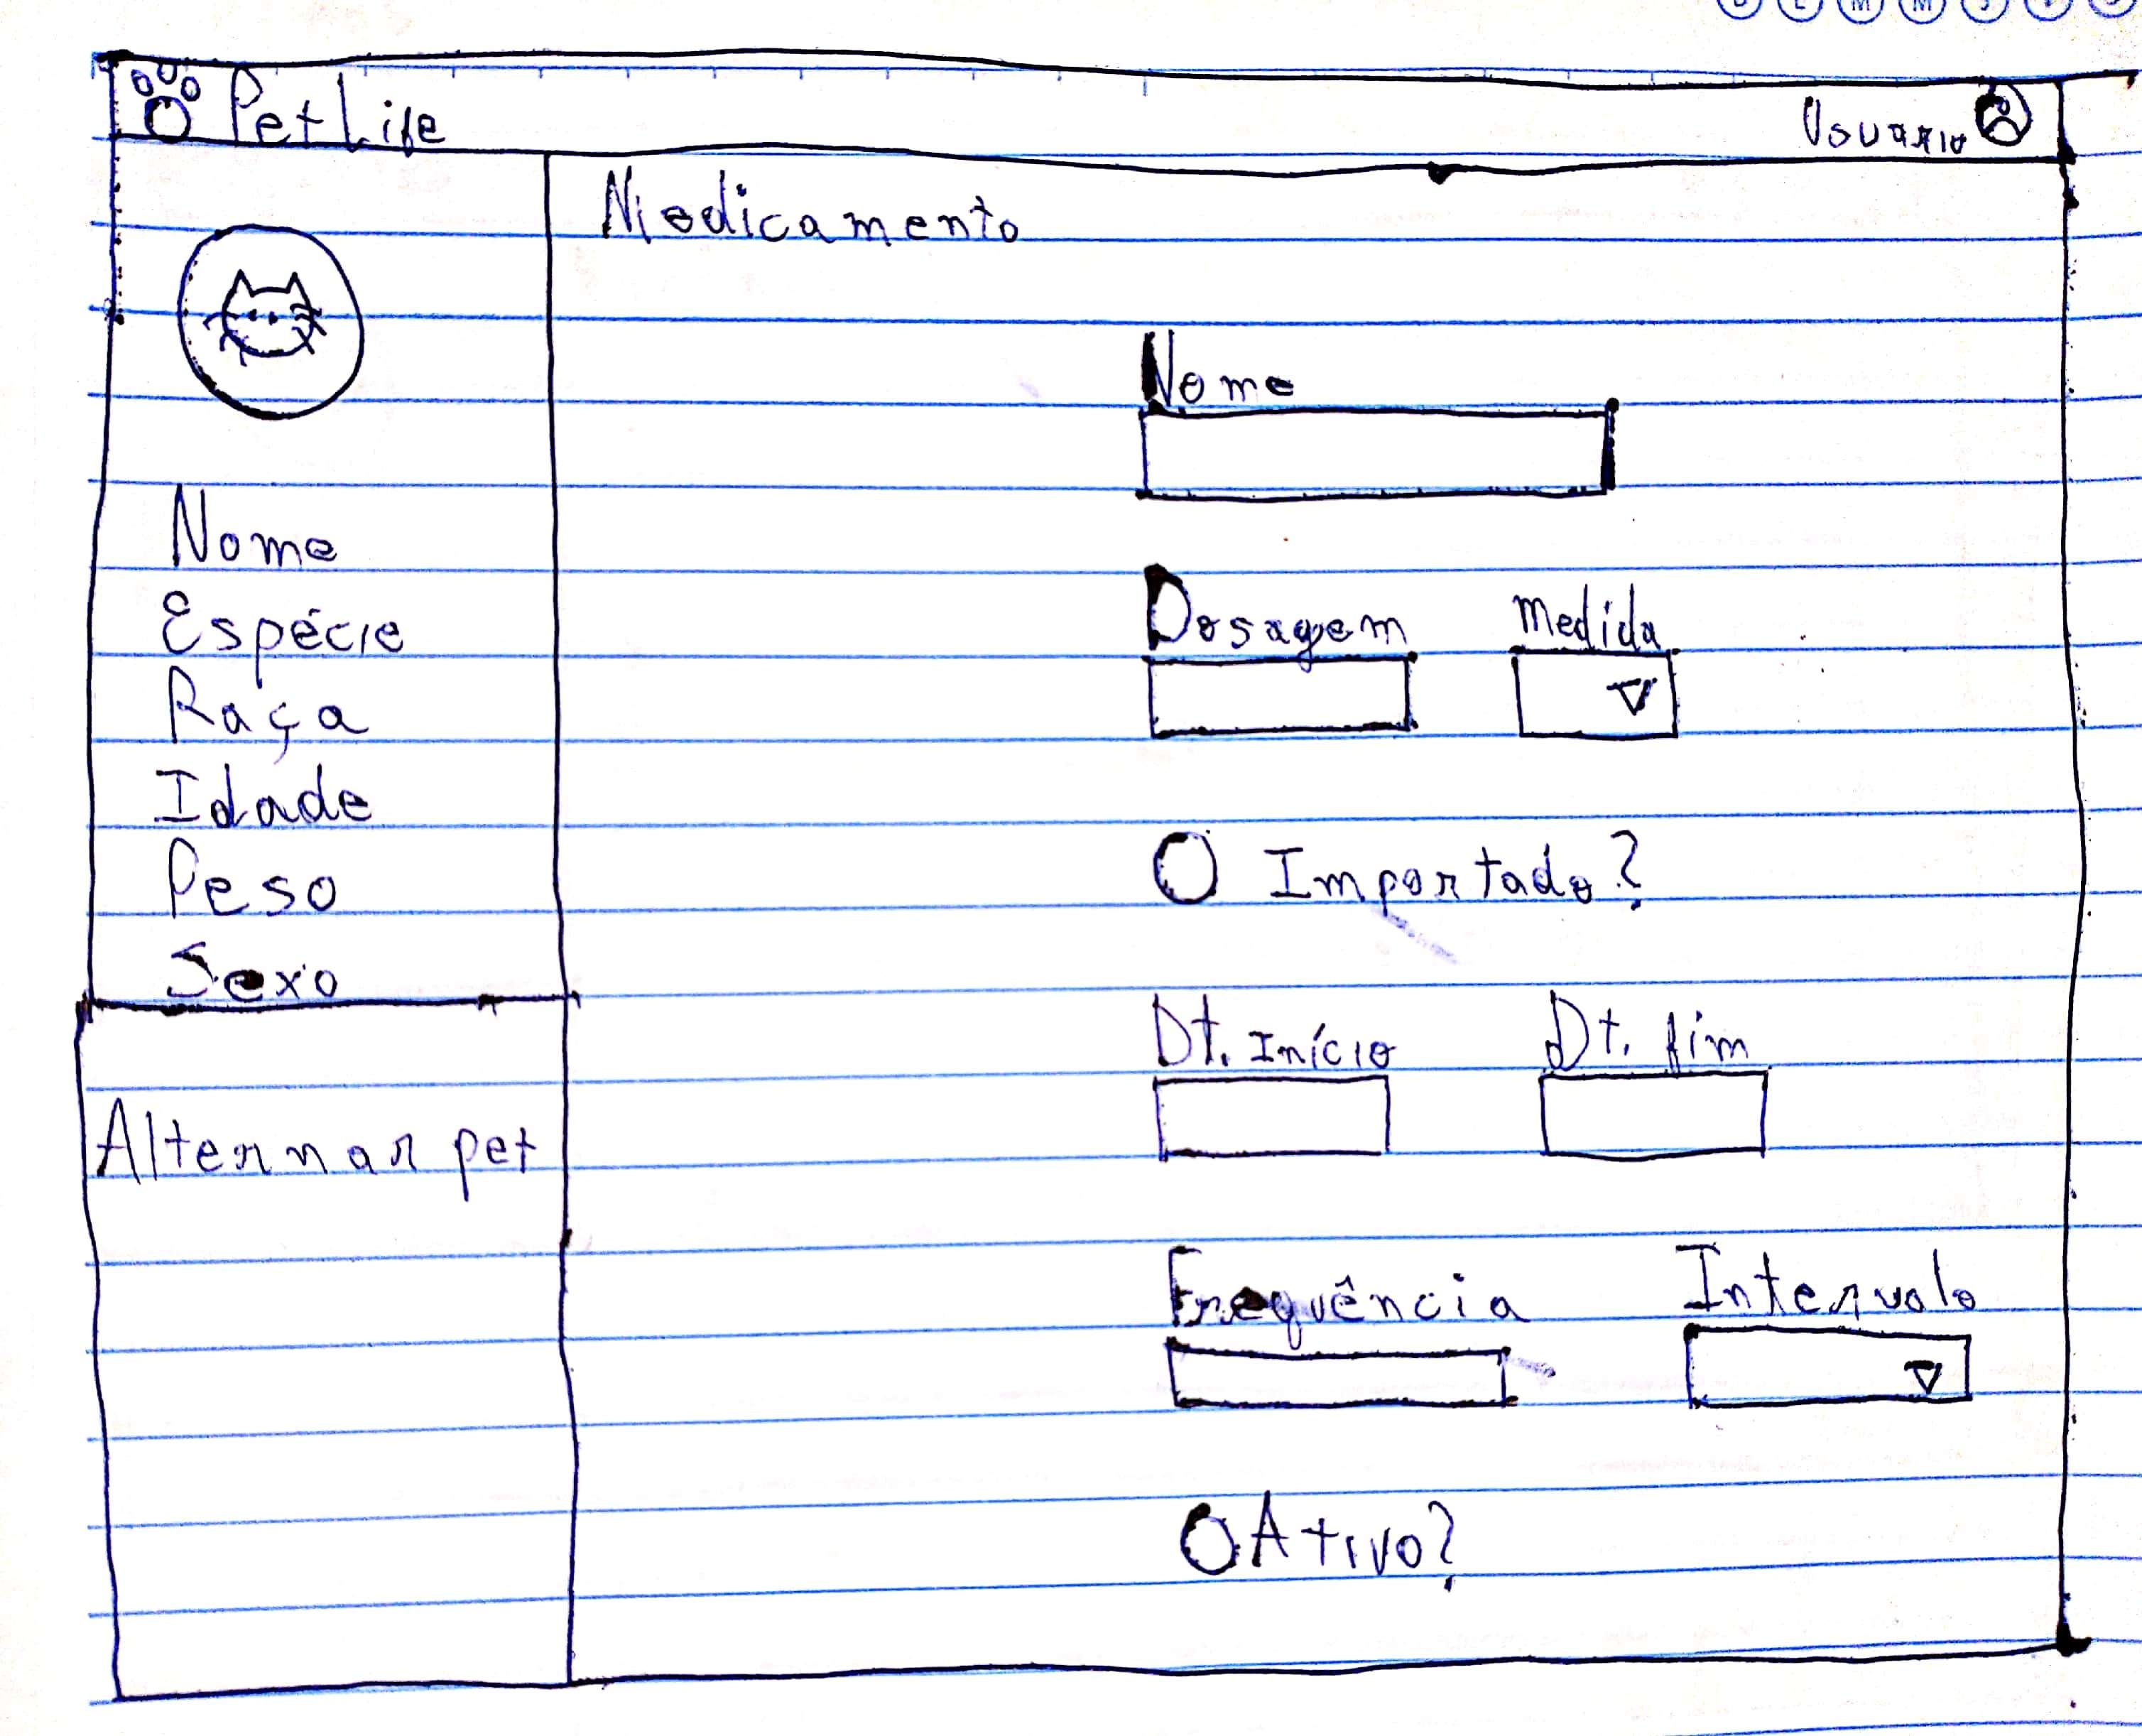 PetLife
Usuário
Medicamento
Nome
Espécie
Raça
Idade
Peso
Sexo
Alternar pet
Nome
Dosagem Medida
Importado?
Dt. Início Dt. fim
Frequência Intervalo
Ativo?